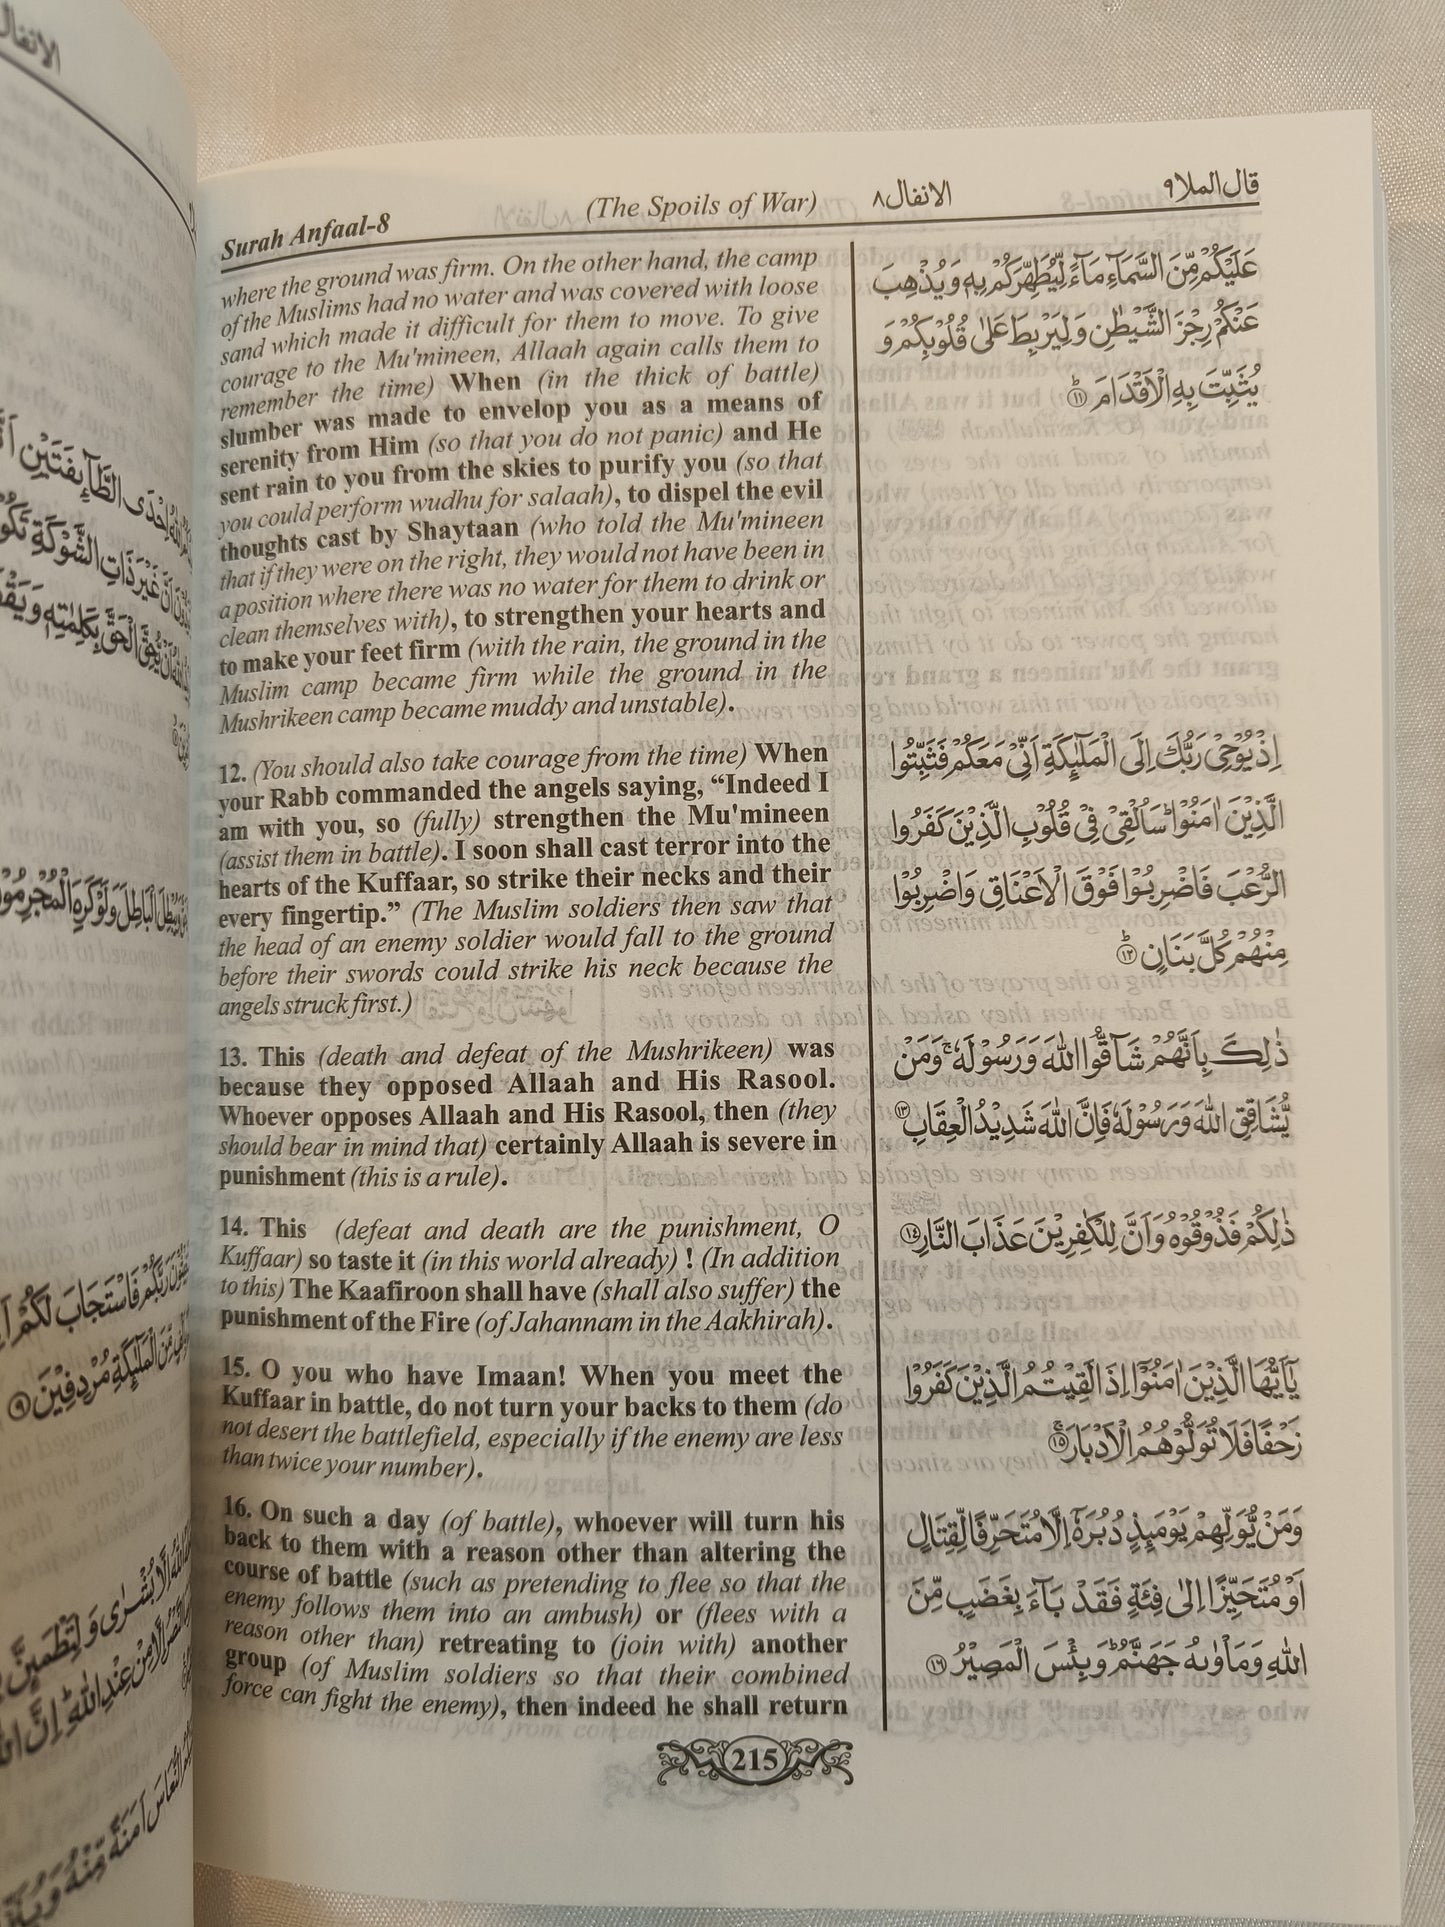 Surah Anfaal-8
(The Spoils of War)
الانفال ٨
قال الملا ٩
where the ground was firm. On the other hand, the camp
of the Muslims had no water and was covered with loose
sand which made it difficult for them to move. To give
courage to the Mu'mineen, Allaah again calls them to
remember the time) When (in the thick of battle)
slumber was made to envelop you as a means of
serenity from Him (so that you do not panic) and He
sent rain to you from the skies to purify you (so that
you could perform wudhu for salaah), to dispel the evil
thoughts cast by Shaytaan (who told the Mu'mineen
that if they were on the right, they would not have been in
a position where there was no water for them to drink or
clean themselves with), to strengthen your hearts and
to make your feet firm (with the rain, the ground in the
Muslim camp became firm while the ground in the
Mushrikeen camp became muddy and unstable).
12. (You should also take courage from the time) When
your Rabb commanded the angels saying, “Indeed I
am with you, so (fully) strengthen the Mu'mineen
(assist them in battle). I soon shall cast terror into the
hearts of the Kuffaar, so strike their necks and their
every fingertip.” (The Muslim soldiers then saw that
the head of an enemy soldier would fall to the ground
before their swords could strike his neck because the
angels struck first.)
13. This (death and defeat of the Mushrikeen) was
because they opposed Allaah and His Rasool.
Whoever opposes Allaah and His Rasool, then (they
should bear in mind that) certainly Allaah is severe in
punishment (this is a rule).
14. This (defeat and death are the punishment, O
Kuffaar) so taste it (in this world already) ! (In addition
to this) The Kaafiroon shall have (shall also suffer) the
punishment of the Fire (of Jahannam in the Aakhirah).
15. O you who have Imaan! When you meet the
Kuffaar in battle, do not turn your backs to them (do
not desert the battlefield, especially if the enemy are less
than twice your number).
16. On such a day (of battle), whoever will turn his
back to them with a reason other than altering the
course of battle (such as pretending to flee so that the
enemy follows them into an ambush) or (flees with a
reason other than) retreating to (join with) another
group (of Muslim soldiers so that their combined
force can fight the enemy), then indeed he shall return
عَلَيْكُمْ مِّنَ السَّمَآءِ مَآءً لِّيُطَهِّرَكُمْ بِهٖ وَيُذْهِبَ
عَنْكُمْ رِجْزَ الشَّيْطٰنِ وَلِيَرْبِطَ عَلٰى قُلُوْبِكُمْ وَ
يُثَبِّتَ بِهِ الْاَقْدَامَ ؕ﴿١١﴾
اِذْ يُوْحِيْ رَبُّكَ اِلَى الْمَلٰٓئِكَةِ اَنِّيْ مَعَكُمْ فَثَبِّتُوا
الَّذِيْنَ اٰمَنُوْا ؕ سَاُلْقِيْ فِيْ قُلُوْبِ الَّذِيْنَ كَفَرُوا
الرُّعْبَ فَاضْرِبُوْا فَوْقَ الْاَعْنَاقِ وَاضْرِبُوْا
مِنْهُمْ كُلَّ بَنَانٍ ؕ﴿١٢﴾
ذٰلِكَ بِاَنَّهُمْ شَآقُّوا اللّٰهَ وَرَسُوْلَهٗ ۚ وَمَنْ
يُّشَاقِقِ اللّٰهَ وَرَسُوْلَهٗ فَاِنَّ اللّٰهَ شَدِيْدُ الْعِقَابِ ﴿١٣﴾
ذٰلِكُمْ فَذُوْقُوْهُ وَاَنَّ لِلْكٰفِرِيْنَ عَذَابَ النَّارِ ﴿١٤﴾
يٰٓاَيُّهَا الَّذِيْنَ اٰمَنُوْٓا اِذَا لَقِيْتُمُ الَّذِيْنَ كَفَرُوْا
زَحْفًا فَلَا تُوَلُّوْهُمُ الْاَدْبَارَ ۚ﴿١٥﴾
وَمَنْ يُّوَلِّهِمْ يَوْمَئِذٍ دُبُرَهٗٓ اِلَّا مُتَحَرِّفًا لِّقِتَالٍ
اَوْ مُتَحَيِّزًا اِلٰى فِئَةٍ فَقَدْ بَآءَ بِغَضَبٍ مِّنَ
اللّٰهِ وَمَاْوٰىهُ جَهَنَّمُ ؕ وَبِئْسَ الْمَصِيْرُ ﴿١٦﴾
215